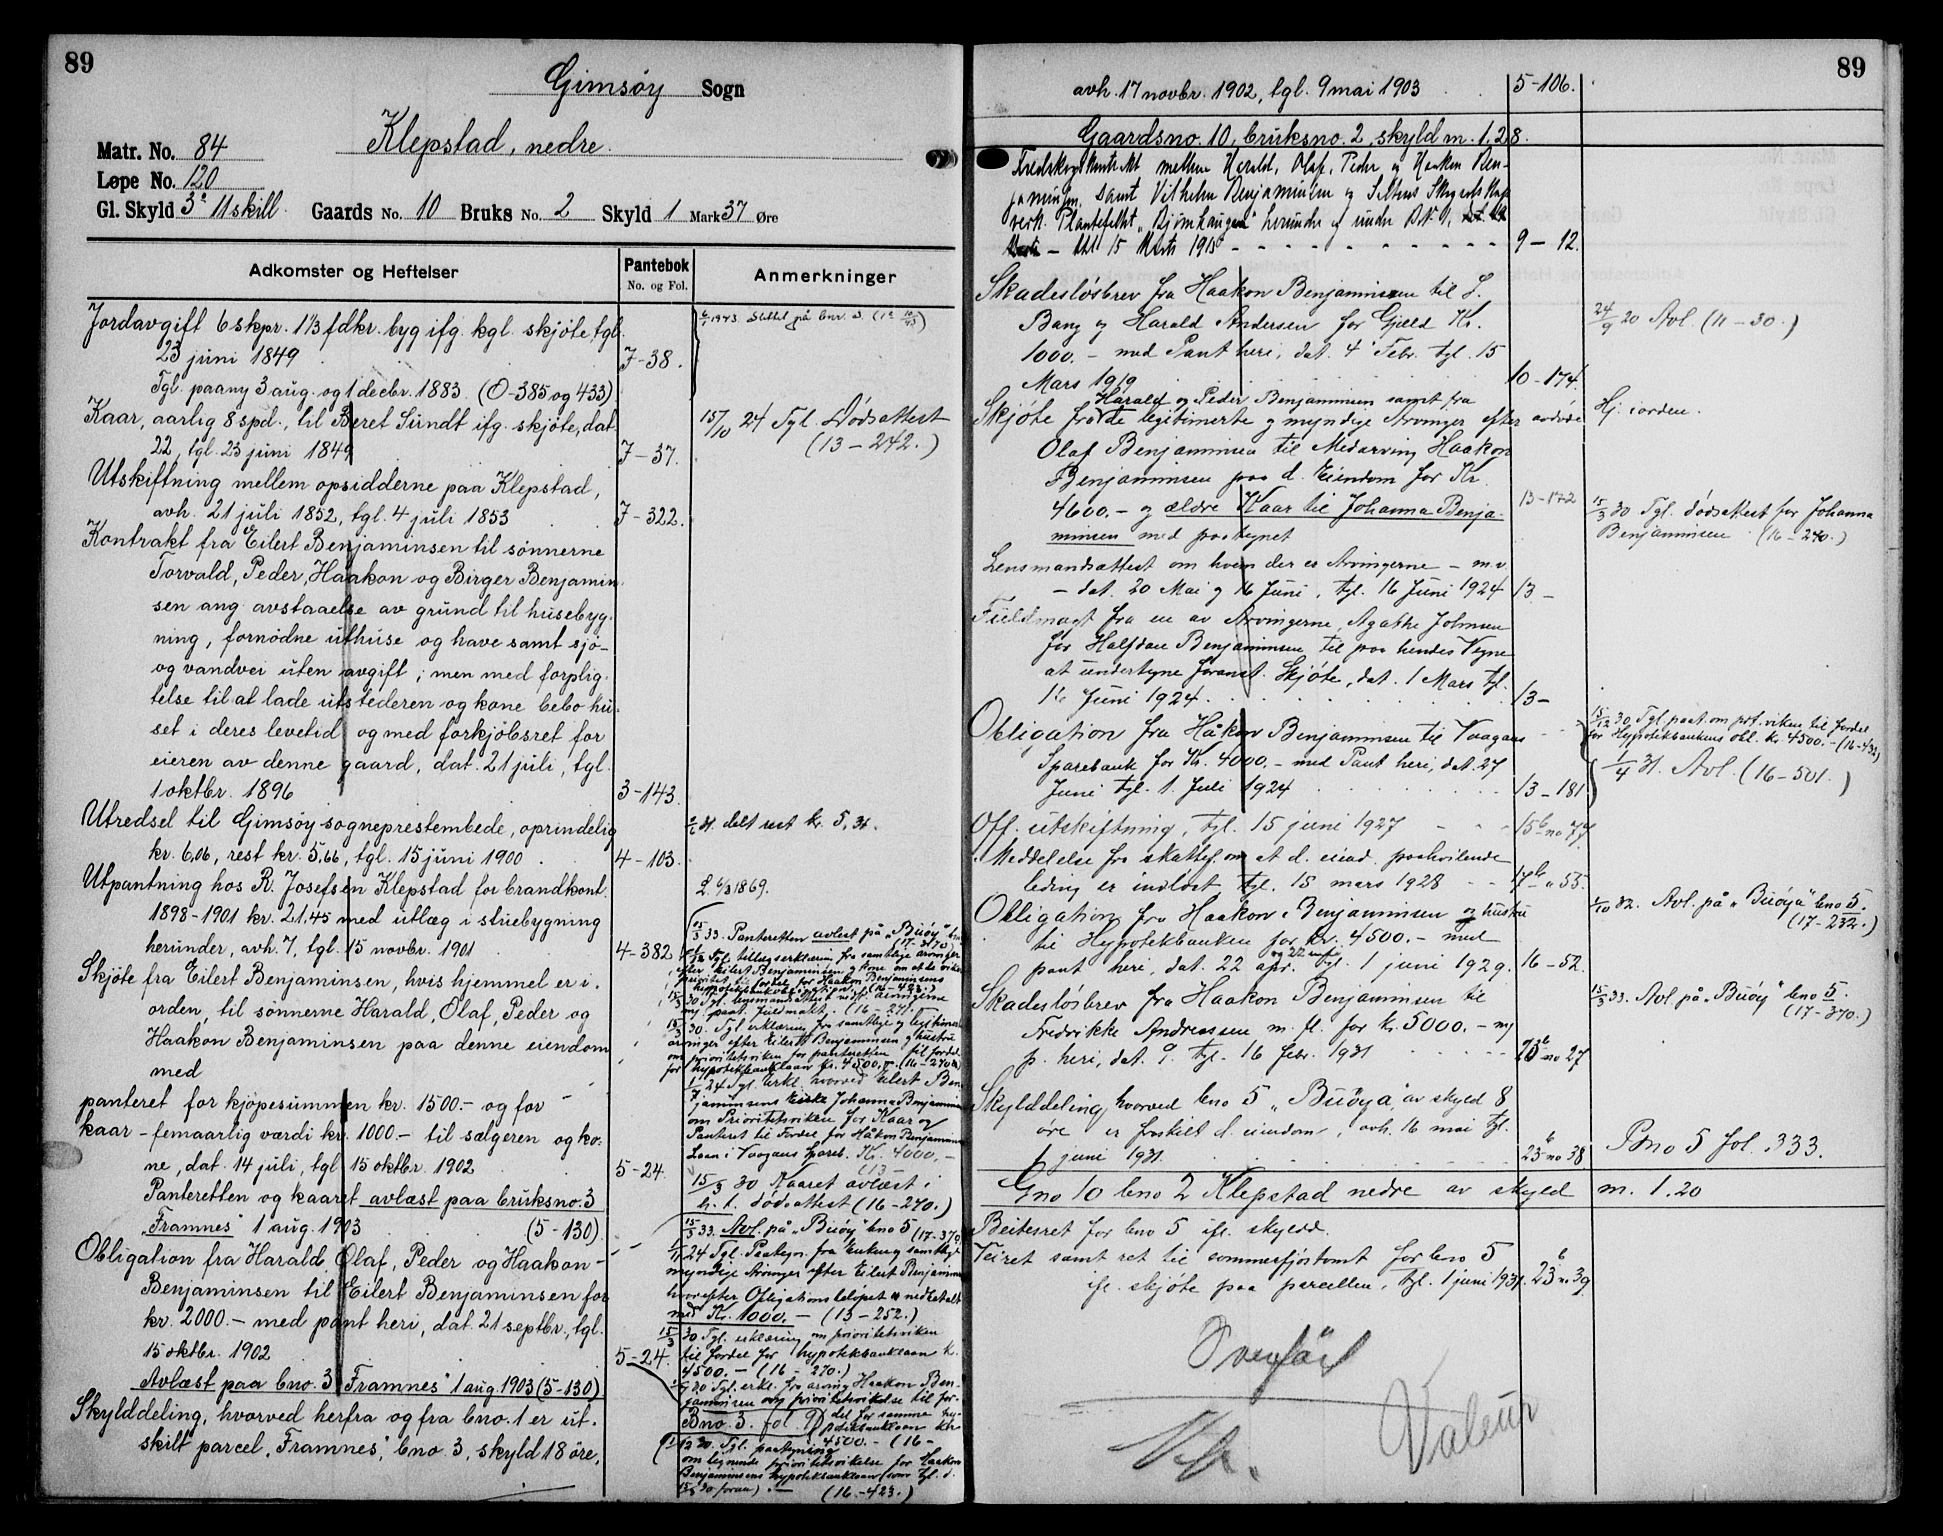 89
Gimsøy Sogn
Matr. No. 84
Klepstad, nedre.
Løpe No. 120
Gl. Skyld 3 11 skill. Gaards No. 10 Bruks No. 2 Skyld 1 Mark 37 Øre
Adkomster og Heftelser
Pantebok
No. og Fol.
Anmerkninger
Jordavgift 6 skpr. 1 1/3 fdkr. byg ifg. kgl. skjøte, tgl.
23 juni 1849 7-38.
Tgl. paany 3 aug. og 1 decbr. 1883. (O-385 og 433)
Kaar, aarlig 8 spd., til Beret Sundt ifg. skjøte, dat.
22, tgl. 23 juni 1849 7-37.
15/10 24 Tgl. Dødsattest
(13-242.)
Utskiftning mellem opsidderne paa Klepstad,
avh. 21 juli 1852, tgl. 4 juli 1853 7-322.
Kontrakt fra Eilert Benjaminsen til sønnerne
Torvald, Peder, Haakon og Birger Benjamin-
sen ang. avstaaelse av grund til husebyg-
ning, fornødne uthuse og have samt sjø-
og vandvei uten avgift; men med forplig-
telse til at lade utstederen og kone bebo hu-
set i deres levetid og med forkjøbsret for
eieren av denne gaard, dat. 21 juli, tgl.
1 oktbr. 1896 3-143.
Utredsel til Gimsøy sogneprestembede, oprindelig
kr. 6,06, rest kr. 5,66, tgl. 15 juni 1900. 4-103.
delt rest kr. 5,31.
Utpantning hos R. Josefsen Klepstad for brandkont.
1898-1901 kr. 21.45 med utlæg i stuebygning
herunder, avh. 7, tgl. 15 novbr. 1901 4-382
L. 6/3 1869.
Skjøte fra Eilert Benjaminsen, hvis hjemmel er i
orden, til sønnerne Harald, Olaf, Peder og
Haakon Benjaminsen paa denne eiendom
med
panteret for kjøpesummen kr. 1500.- og for
kaar - femaarlig værdi kr. 1000.- til sælgeren og ko-
ne, dat. 14 juli, tgl. 15 oktbr. 1902 5-24.
Panteretten og kaaret avlæst paa bruksno. 3
„Framnes" 1 aug. 1903 (5-130).
Obligation fra Harald, Olaf, Peder og Haakon
Benjaminsen til Eilert Benjaminsen for
kr. 2000.- med pant heri, dat. 21 septbr., tgl.
15 oktbr. 1902 5-24.
Avlæst paa bno. 3 „Framnes" 1 aug. 1903 (5-130)
Skylddeling, hvorved herfra og fra bno. 1 er ut-
skilt parcel „Framnes", bno. 3, skyld 18 øre,
15/3 33. Panteretten avlest på „Buøy" bno
(17-370)
Tgl. erklæring fra samtlige arvinger
efter Eilert Benjaminsen og kone om at de viker
prioritet til fordel for Haakon Benjaminsens
(16-423.)
(16-271.)
15/3 30. Tgl. erklæring fra samtlige og legitime
arvinger efter Eilert Benjaminsen og hustru
om prioritetsviken for panteretten til fordel
for hypotekbanklaan kr. 4500,- (16-270)
24 Tgl. Erkl. hvorved Eilert Ben-
jaminsens Enke Johanna Benjaminsen
om Prioritetsviken for Kaar og
Panteret til Fordel for Håkon Benjaminsens
Laan i Vaagans Spareb. Kr. 4000,-
15/3 30 Kaaret avlæst i
h. t. dødsattest (16-270.)
15/3 33. Avl. på „Buøy" bno 5 (17-370)
24 Tgl. Paategn. fra Enken og samtlige
myndige Arvinger efter Eilert Benjaminsen
hvorefter Obligationsbeløpet er nedbetalt
med Kr. 1000.- (13-252.)
15/3 30 Tgl. erklæring om prioritetsviken
til fordel for hypotekbanklaan kr.
4500.- (16-270.)
30 Tgl. erkl. fra arving Haakon Ben-
jaminsen om prioritetsvikelse til for-
del for samme hy-
potekbanklaan kr.
4500.- (16-
Bno. 3. fol 91
30. Tgl. paategning
om lignende prioritetsvikelse for Haakon
Benjaminsens hypotekbanklaan (som tgl. d.
15/3 30 foran) .- (16-423.)
89
avh. 17 novbr. 1902, tgl. 9 mai 1903 5-106.
Gaardsno. 10, bruksno. 2, skyld m. 1.28.
Fredskogkontrakt mellem Harald, Olaf, Peder og Haakon Ben-
jaminsen, samt Vilhelm Benjaminsen og Statens Skogselskap
verk. Plantefeltet „Bjørnhaugen" herunder og under B.N. 1,
15 Marts 1915 9-12.
Skadesløsbrev fra Haakon Benjaminsen til L.
Bang og Harald Andersen for Gjæld Kr.
1000.- med Pant heri, dat. 4 Febr. tgl. 15
Mars 1919 10-174.
24/9 20 Avl. (11-30.)
Harald og Peder Benjaminsen samt fra
Skjøte fra de legitimerte og myndige Arvinger efter avdøde
Olaf Benjaminsen til Medarving Haakon
Benjaminsen paa d. Eiendom for Kr.
4600.- og ældre Kaar til Johanna Benja-
minsen med paategnet 13-172
Hj. i orden.
15/3 30 Tgl. dødsattest for Johanna
Benjaminsen (16-270.)
Lensmandsattest om hvem der er Arvingerne - m.v.
- dat. 20 Mai og 16 Juni, tgl. 16 Juni 1924 13-
Fuldmagt fra en av Arvingerne, Agathe Johnsen
for Halfdan Benjaminsen til paa hendes Vegne
at undertegne foranst. Skjøte, dat. 1 Mars tgl.
16 Juni 1924 13-
Obligation fra Håkon Benjaminsen til Vaagans
Sparebank for Kr. 4000.- med Pant heri, dat. 27
Juni tgl. 1. Juli 1924 13-181
15/12 30 Tgl. paat. om prt. viken til fordel
for Hypotekbankens obl. kr. 4500.- (16-432)
1/4 31. Avl. (16-501.)
Off. utskiftning, tgl. 15 juni 1927 15 b no 77
Meddelelse fra skattef. om at d. eiend. paahvilende
leding er indløst, tgl. 15 mars 1928 17 b " 55.
Obligation fra Haakon Benjaminsen og hustru
til Hypotekbanken for kr. 4500.- med
pant heri, dat. 22 apr. tgl. 1 juni 1929. 16-52.
1/10 32. Avl. på „Buøya" bno 5.
(17-232.)
Skadesløsbrev fra Haakon Benjaminsen til
Fredrikke Andreassen m. fl. for kr. 5000.- m/
p. heri, dat. 9. tgl. 16 febr. 1931 23 b no 27
15/3 33. Avl på „Buøy" bno 5.
(17-370.)
Skylddeling hvorved bno 5 „Buøya" av skyld 8
øre er fraskilt d. eiendom, avh. 16 mai tgl.
1 juni 1931. 23 b no 38
Bno 5 fol. 333.
Gno 10 bno 2 Klepstad nedre av skyld m. 1.20
Beitesret for bno 5 ifl. skyldd.
Veiret samt ret til sommerfjøstomt for bno 5
ifl. skjøte paa parcellen, tgl. 1 juni 1931. 23 b no 39.
Overført
Valeur